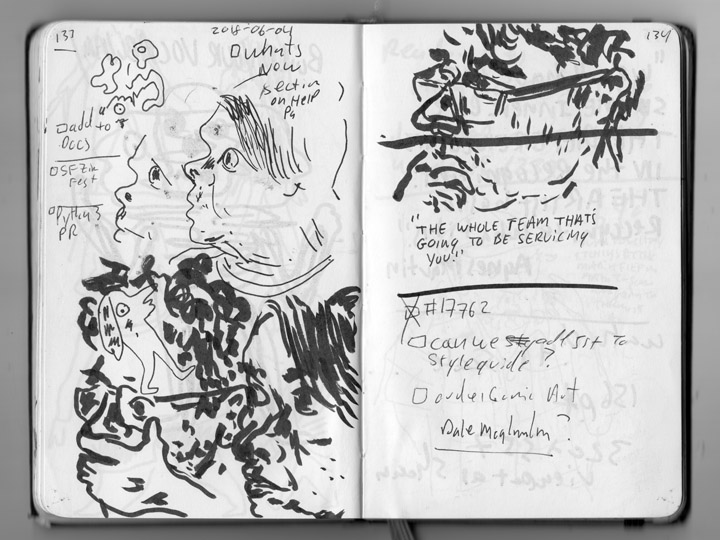 133
2018-06-04
□ whats
New
section
on Help
Pg
□ add to
Docs
□ SF Zine
Fest
□ Python 3
PR
134
"THE WHOLE TEAM THATS
GOING TO BE SERVICING
YOU!"
#17762
□ can we add SSt To
Styleguide?
□ order Comic Art
Dale
?